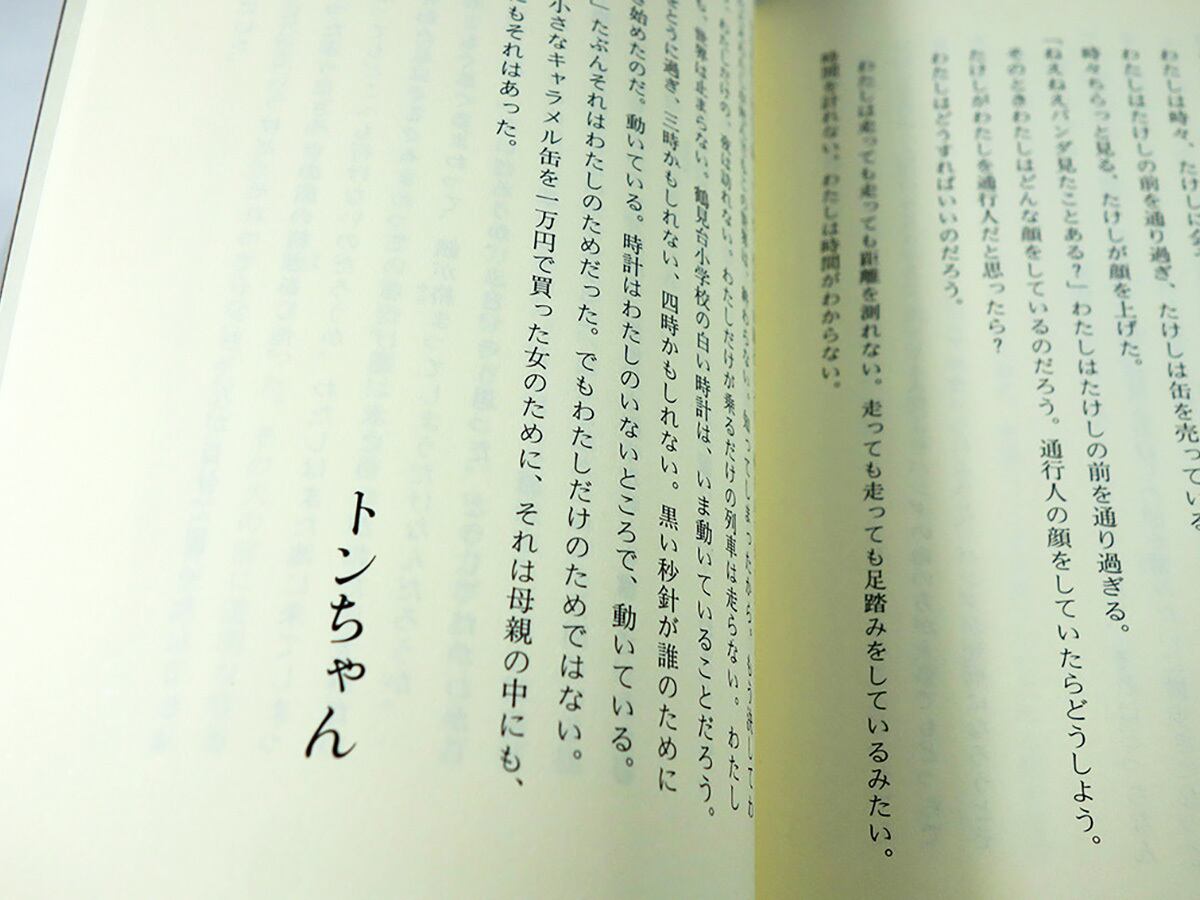 わたしは時々、たけしに会
わたしはたけしの前を通り過ぎ、たけしは缶を売っている
時々ちらっと見る、たけしが顔を上げた。
「ねえねえパンダ見たことある？」わたしはたけしの前を通り過ぎる。
そのときわたしはどんな顔をしているのだろう。通行人の顔をしていたらどうしよう。
たけしがわたしを通行人だと思ったら？
わたしはどうすればいいのだろう。
わたしは走っても走っても距離を測れない。走っても走っても足踏みをしているみたい。
時間を計れない。わたしは時間がわからない。
終わらない。知ってしまったから。もう決してわ
わたしだけの、夜は訪れない。わたしだけが乗るだけの列車は走らない。わたし
も。世界は止まらない。鶴見台小学校の白い時計は、いま動いていることだろう。
とうに過ぎ、三時かもしれない、四時かもしれない。黒い秒針が誰のために
始めたのだ。動いている。時計はわたしのいないところで、動いている。
」たぶんそれはわたしのためだった。でもわたしだけのためではない。
小さなキャラメル缶を一万円で買った女のために、それは母親の中にも、
にもそれはあった。
トンちゃん